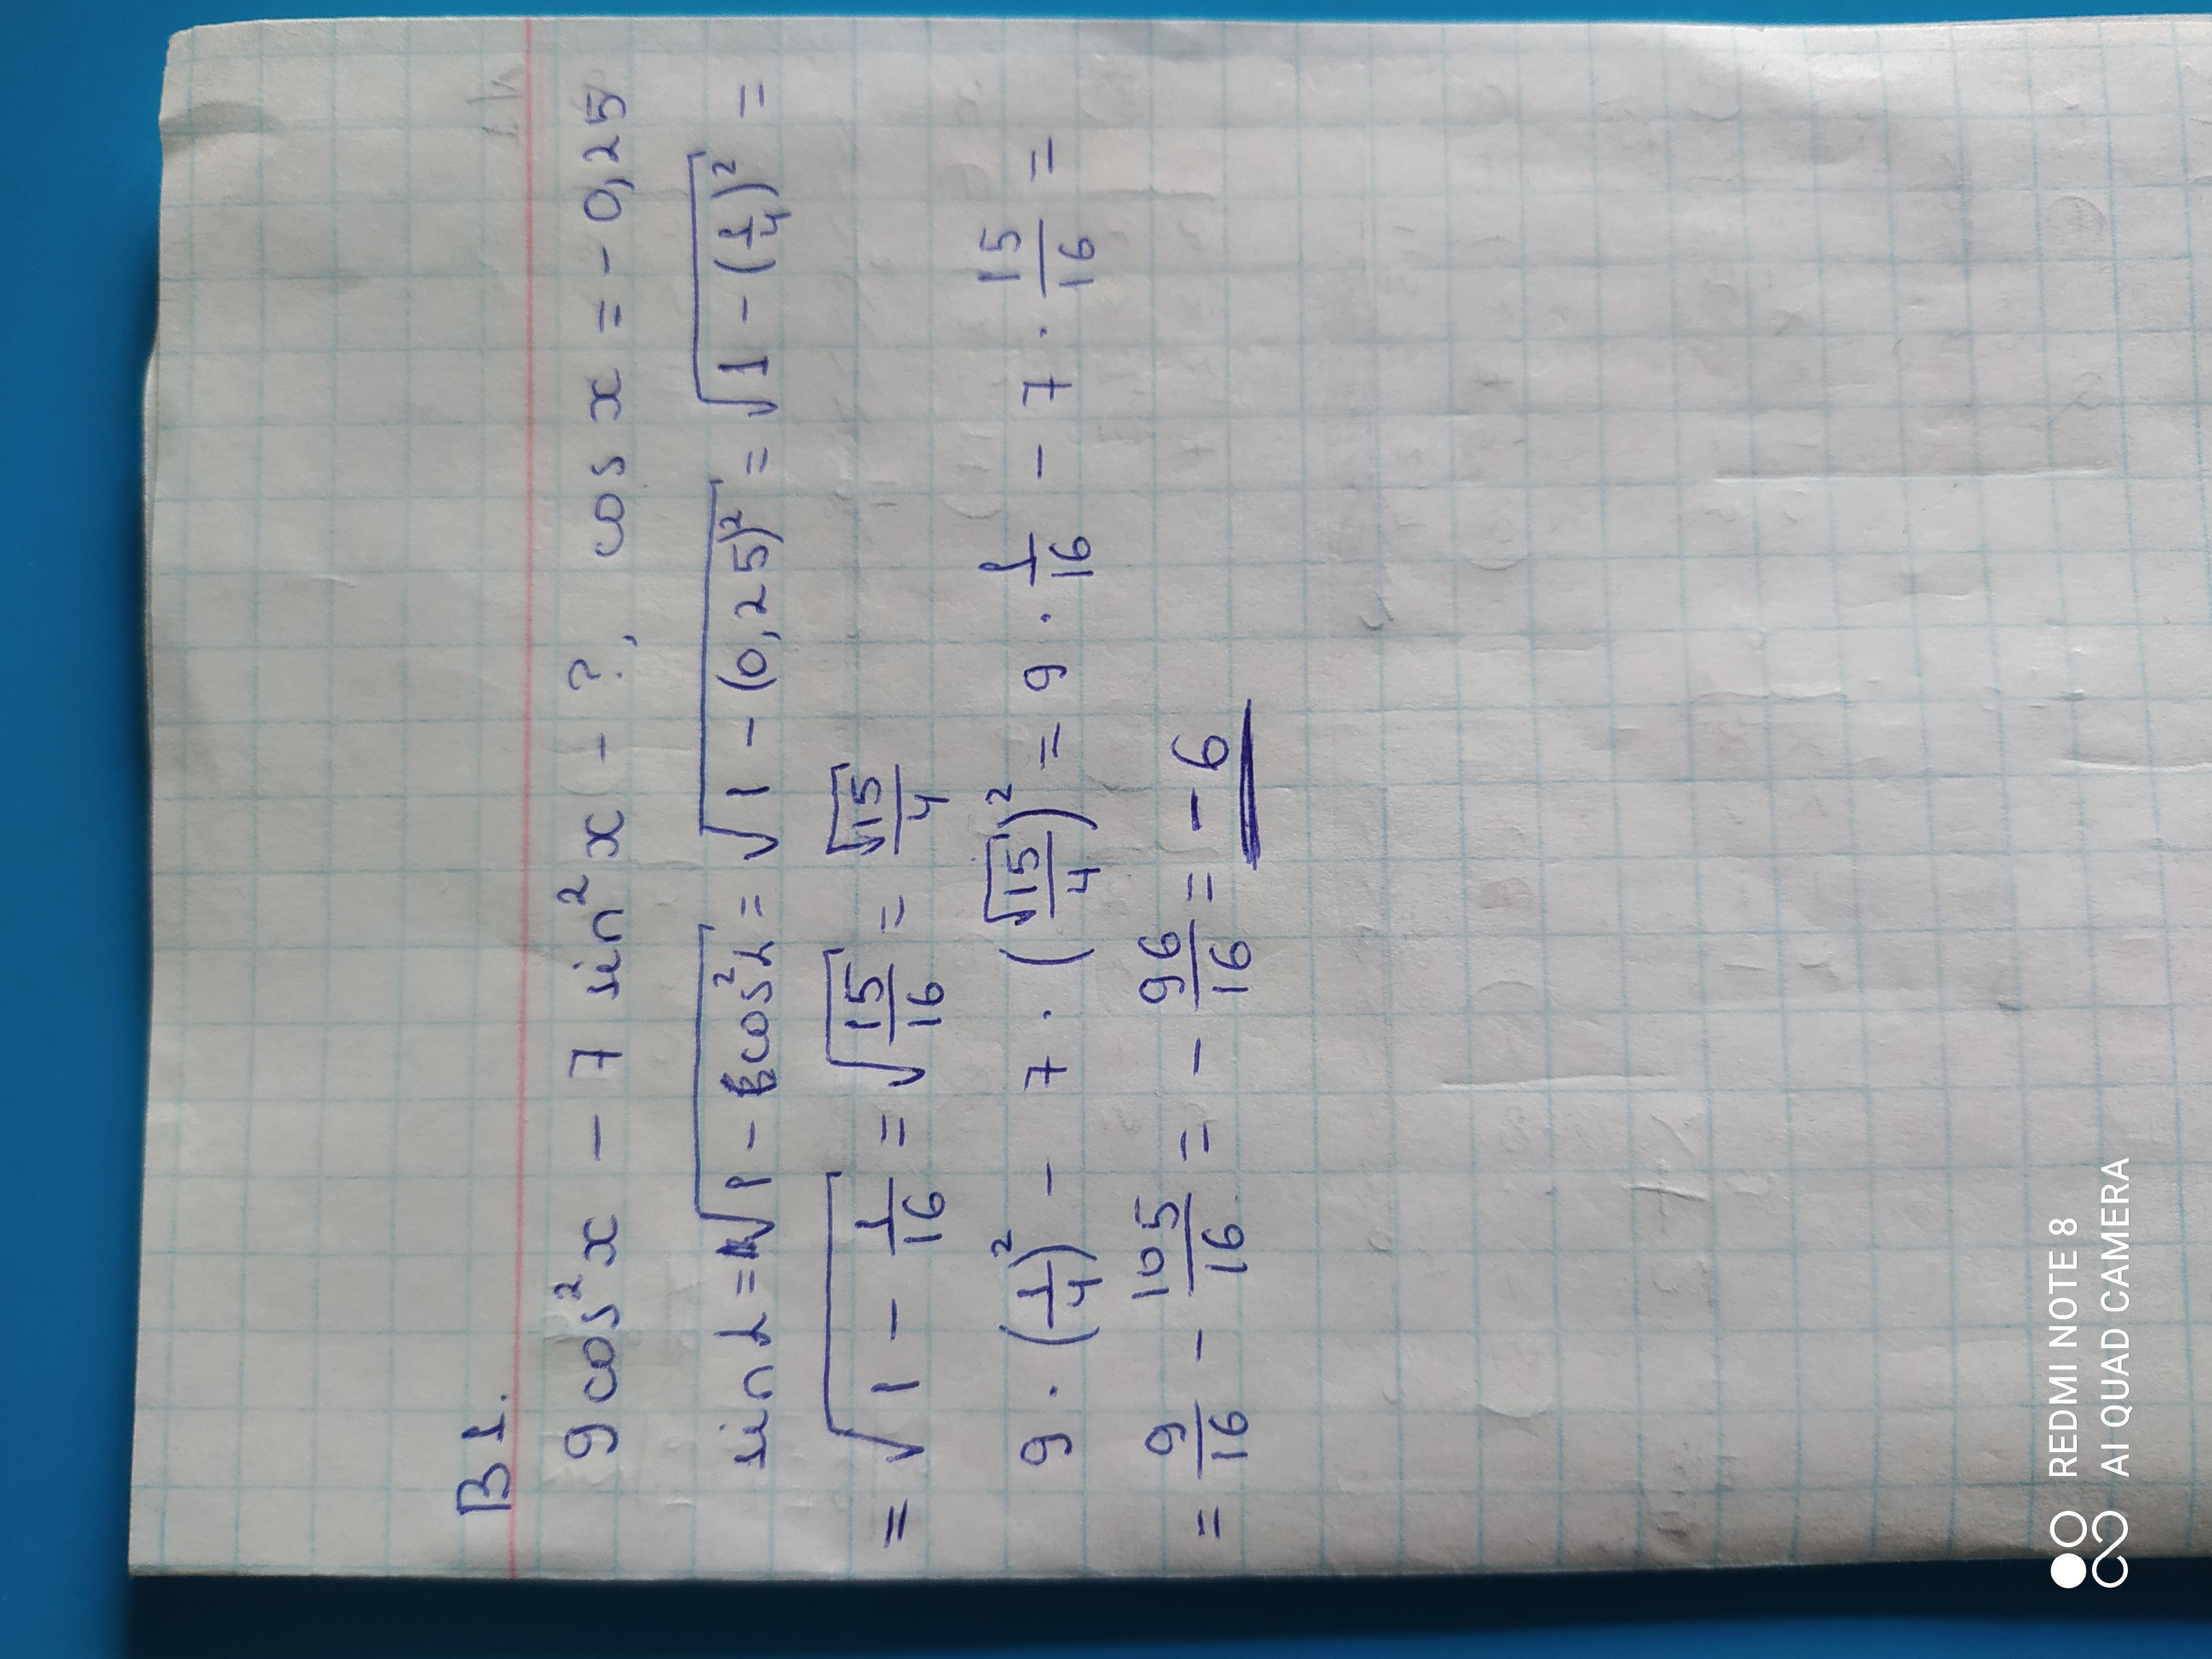 B 1.
9cos²x - 7 sin²x - ?, cos x = -0,25
sin α = √(1 - cos²α) = √(1 - (0,25)²) = √(1 - (1/4)²) =
= √(1 - 1/16) = √(15/16) = √15/4
9 · (1/4)² - 7 · (√15/4)² = 9 · 1/16 - 7 · 15/16 =
= 9/16 - 105/16 = - 96/16 = -6
REDMI NOTE 8
AI QUAD CAMERA